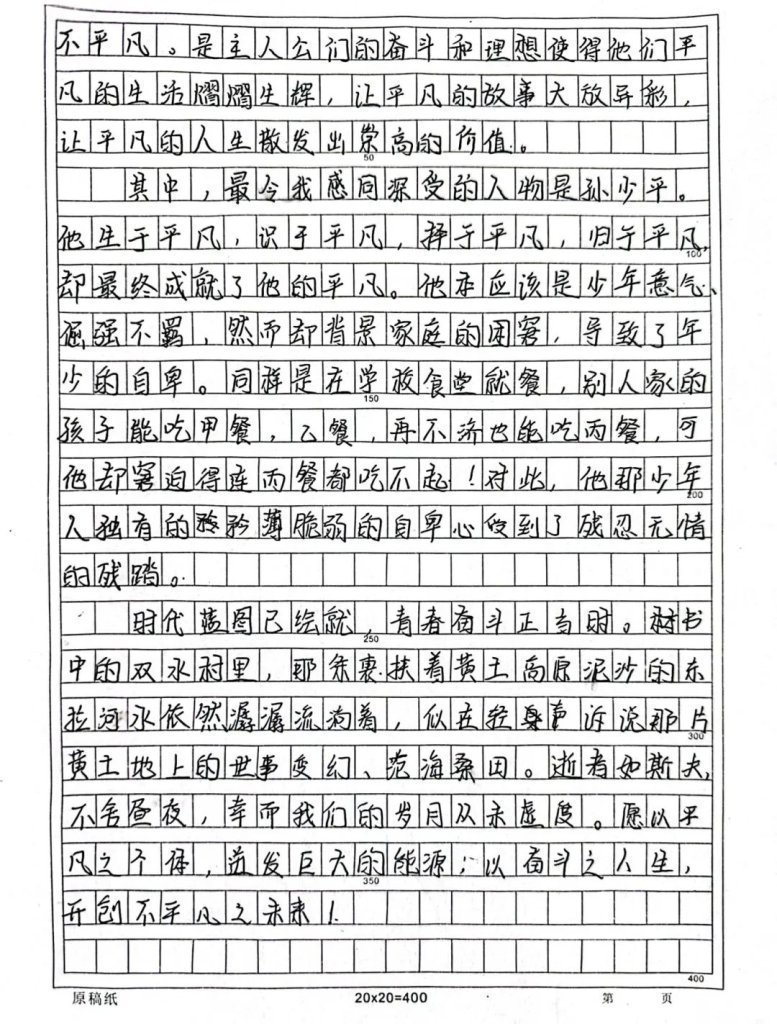 不平凡。是主人公们的奋斗和理想使得他们平
凡的生活熠熠生辉，让平凡的故事大放异彩，
让平凡的人生散发出崇高的价值。
50
其中，最令我感同深受的人物是孙少平。
他生于平凡，识于平凡，择于平凡，归于平凡，
100
却最终成就了他的平凡。他本应该是少年意气、
倔强不羁，然而却背景家庭的困窘，导致了年
少的自卑。同样是在学校食堂就餐，别人家的
150
孩子能吃甲餐，乙餐，再不济也能吃丙餐，可
他却窘迫得连丙餐都吃不起！对此，他那少年
200
人独有的矜矜薄脆弱的自卑心受到了残忍无情
的残踏。
时代蓝图已绘就，青春奋斗正当时。书
250
中的双水村里，那条裹扶着黄土高原泥沙的东
拉河水依然潺潺流淌着，似在轻声诉说那片
300
黄土地上的世事变幻、沧海桑田。逝者如斯夫，
不舍昼夜，幸而我们的岁月从未虚度。愿以平
凡之个体，迸发巨大的能源；以奋斗之人生，
350
开创不平凡之未来！
400
原稿纸 20x20=400 第 页